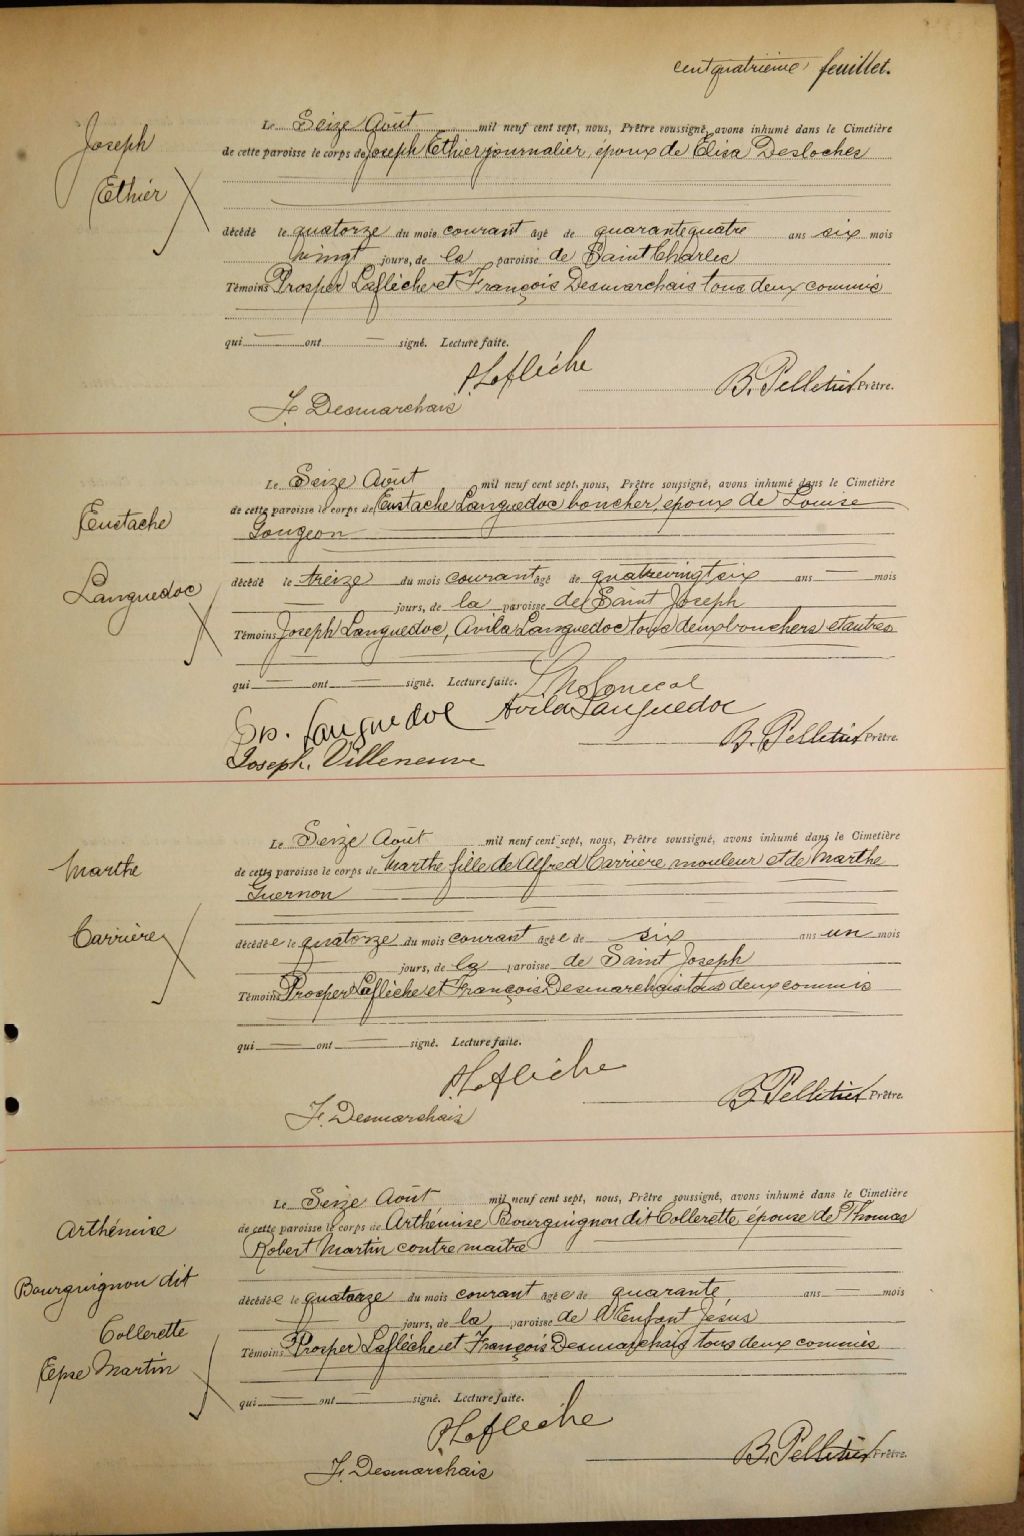 cent quatrième feuillet.
Joseph
Ethier
Le Seize Août mil neuf cent sept, nous, Prêtre soussigné, avons inhumé dans le Cimetière
de cette paroisse le corps de Joseph Ethier journalier, époux de Elisa Desloches
décédé le quatorze du mois courant âgé de quarante quatre ans six mois
vingt jours, de la paroisse de Saint Charles
Témoins Prosper Laflèche et François Desmarchais tous deux commis
qui ont signé. Lecture faite.
P. Laflèche
B. Pelletier Prêtre.
F. Desmarchais
Eustache
Languedoc
Le Seize Août mil neuf cent sept, nous, Prêtre soussigné, avons inhumé dans le Cimetière
de cette paroisse le corps de Eustache Languedoc boucher, époux de Louise
Gougeon
décédé le treize du mois courant âgé de quatrevingt six ans mois
jours, de la paroisse de Saint Joseph
Témoins Joseph Languedoc, Avila Languedoc tous deux bouchers et autres
qui ont signé. Lecture faite.
Jos. Languedoc Avila Languedoc
B. Pelletier Prêtre.
Joseph. Villeneuve
Marthe
Carrière
Le Seize Août mil neuf cent sept, nous, Prêtre soussigné, avons inhumé dans le Cimetière
de cette paroisse le corps de Marthe fille de Alfred Carrière mouleur et de Marthe
Guernon
décédée le quatorze du mois courant âgée de six ans un mois
jours, de la paroisse de Saint Joseph
Témoins Prosper Laflèche et François Desmarchais tous deux commis
qui ont signé. Lecture faite.
P. Laflèche
B. Pelletier Prêtre.
F. Desmarchais
Arthémise
Bourguignon dit
Collerette
Epse Martin
Le Seize Août mil neuf cent sept, nous, Prêtre soussigné, avons inhumé dans le Cimetière
de cette paroisse le corps de Arthémise Bourguignon dit Collerette, épouse de Thomas
Robert Martin contre maître
décédée le quatorze du mois courant âgée de quarante, ans mois
jours, de la paroisse de l'Enfant Jésus
Témoins Prosper Laflèche et François Desmarchais tous deux commis
qui ont signé. Lecture faite.
P. Laflèche
B. Pelletier Prêtre.
F. Desmarchais